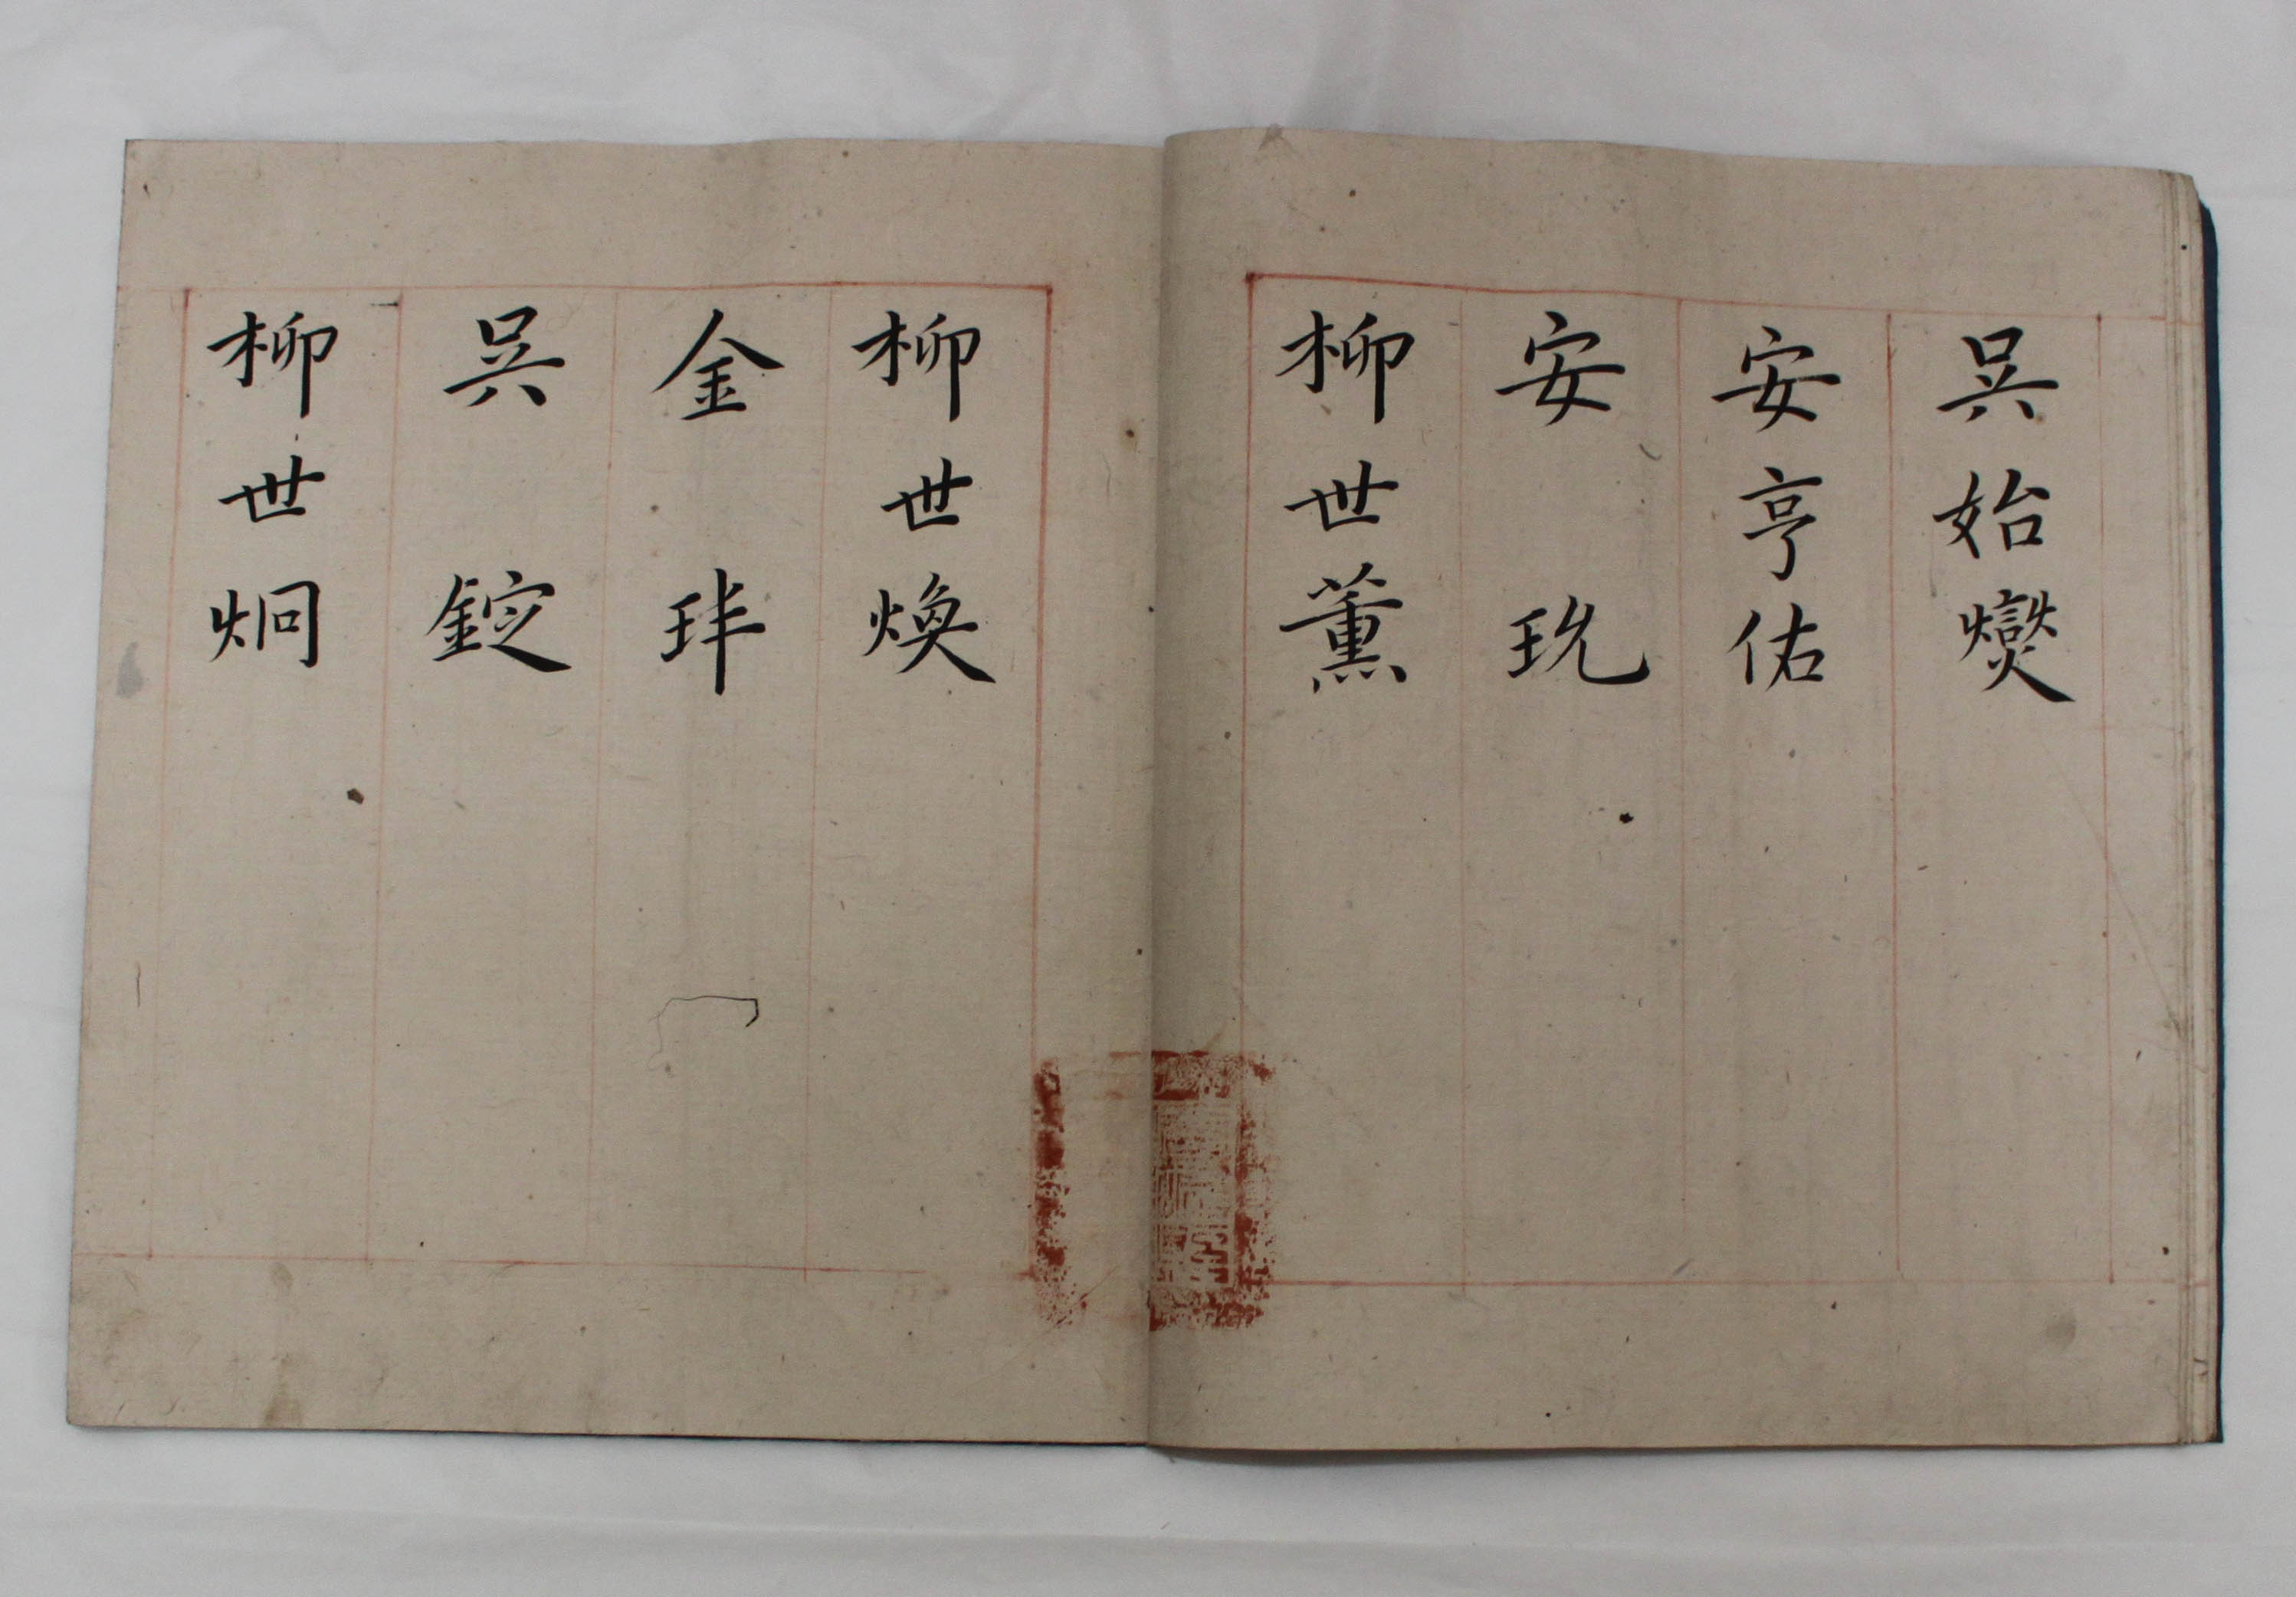 吳始爕
安亨佑
安玧
柳世薰
柳世煥
金玤
吳錠
柳世炯